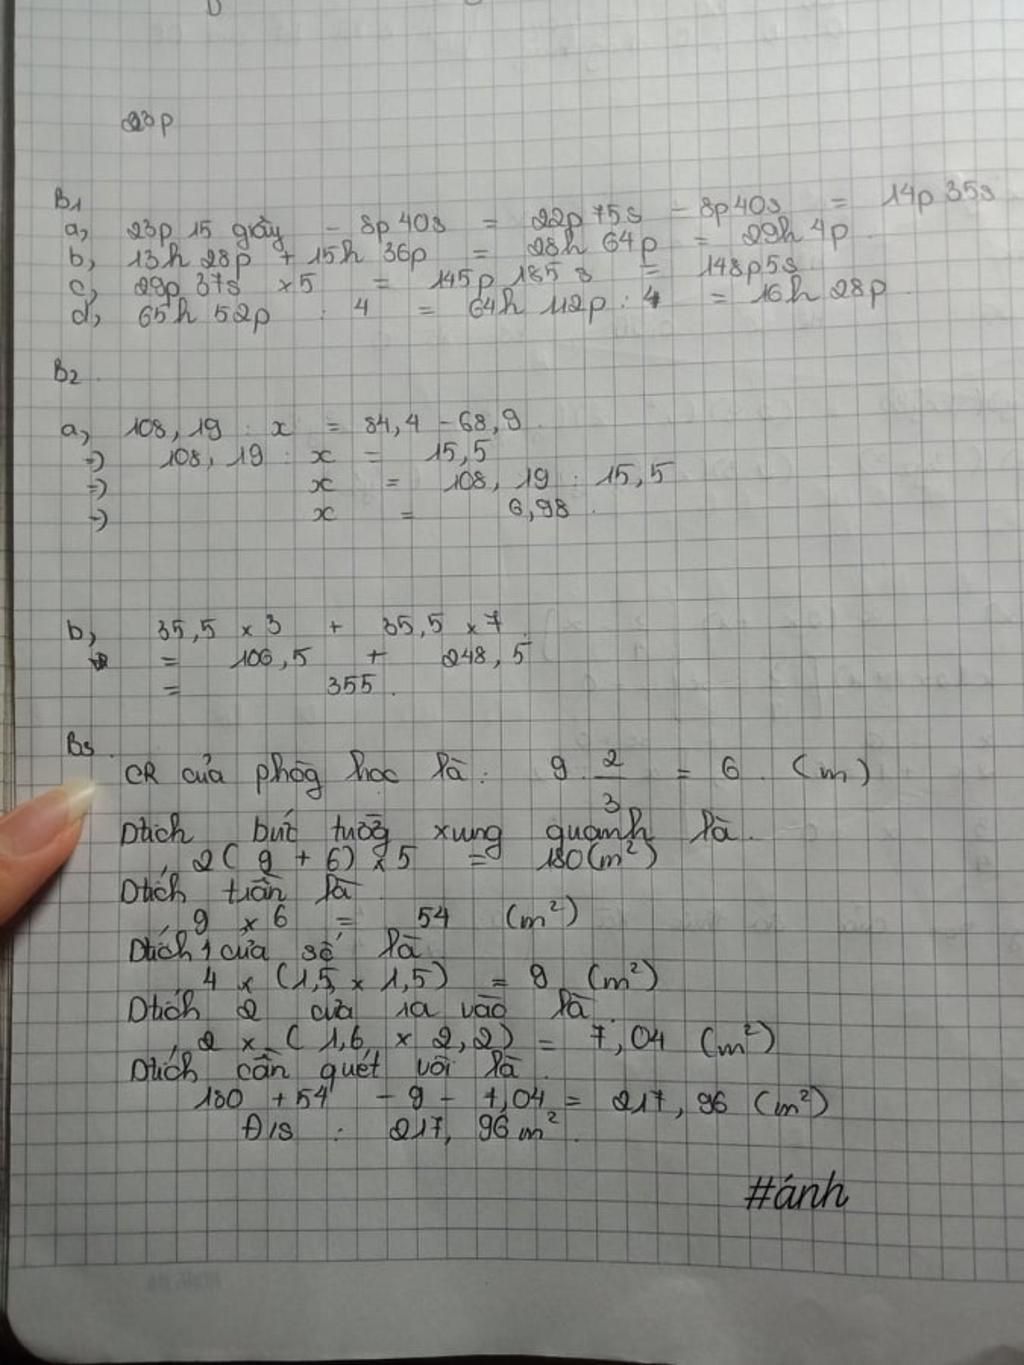 23p
B1
a, 23p 15 giây - 8p 40s = 22p 75s - 8p 40s = 14p 35s
b, 13h 28p + 15h 36p = 28h 64p = 29h 4p.
c, 29p 37s x 5 = 145p 185s = 148p5s
d, 65h 52p : 4 = 64h 112p : 4 = 16h 28p.
B2.
a, 108,19 : x = 84,4 - 68,9.
=> 108,19 : x = 15,5
=> x = 108,19 : 15,5
=> x = 6,98.
b, 35,5 x 3 + 35,5 x 7.
= 106,5 + 248,5
= 355.
B3.
CR của phòg học là: 9. 2/3 = 6. (m)
Dtích bức tườg xung quanh là.
2(9 + 6) x 5 = 180(m²)
Dtích trần là.
9 x 6 = 54 (m²)
Dtích 4 cửa sổ là.
4 x (1,5 x 1,5) = 9 (m²)
Dtích 2 cửa ra vào là.
2 x (1,6 x 2,2) = 7,04 (m²)
Dtích cần quét vôi là.
180 + 54 - 9 - 7,04 = 217,96 (m²)
Đ/s : 217,96 m².
#ánh